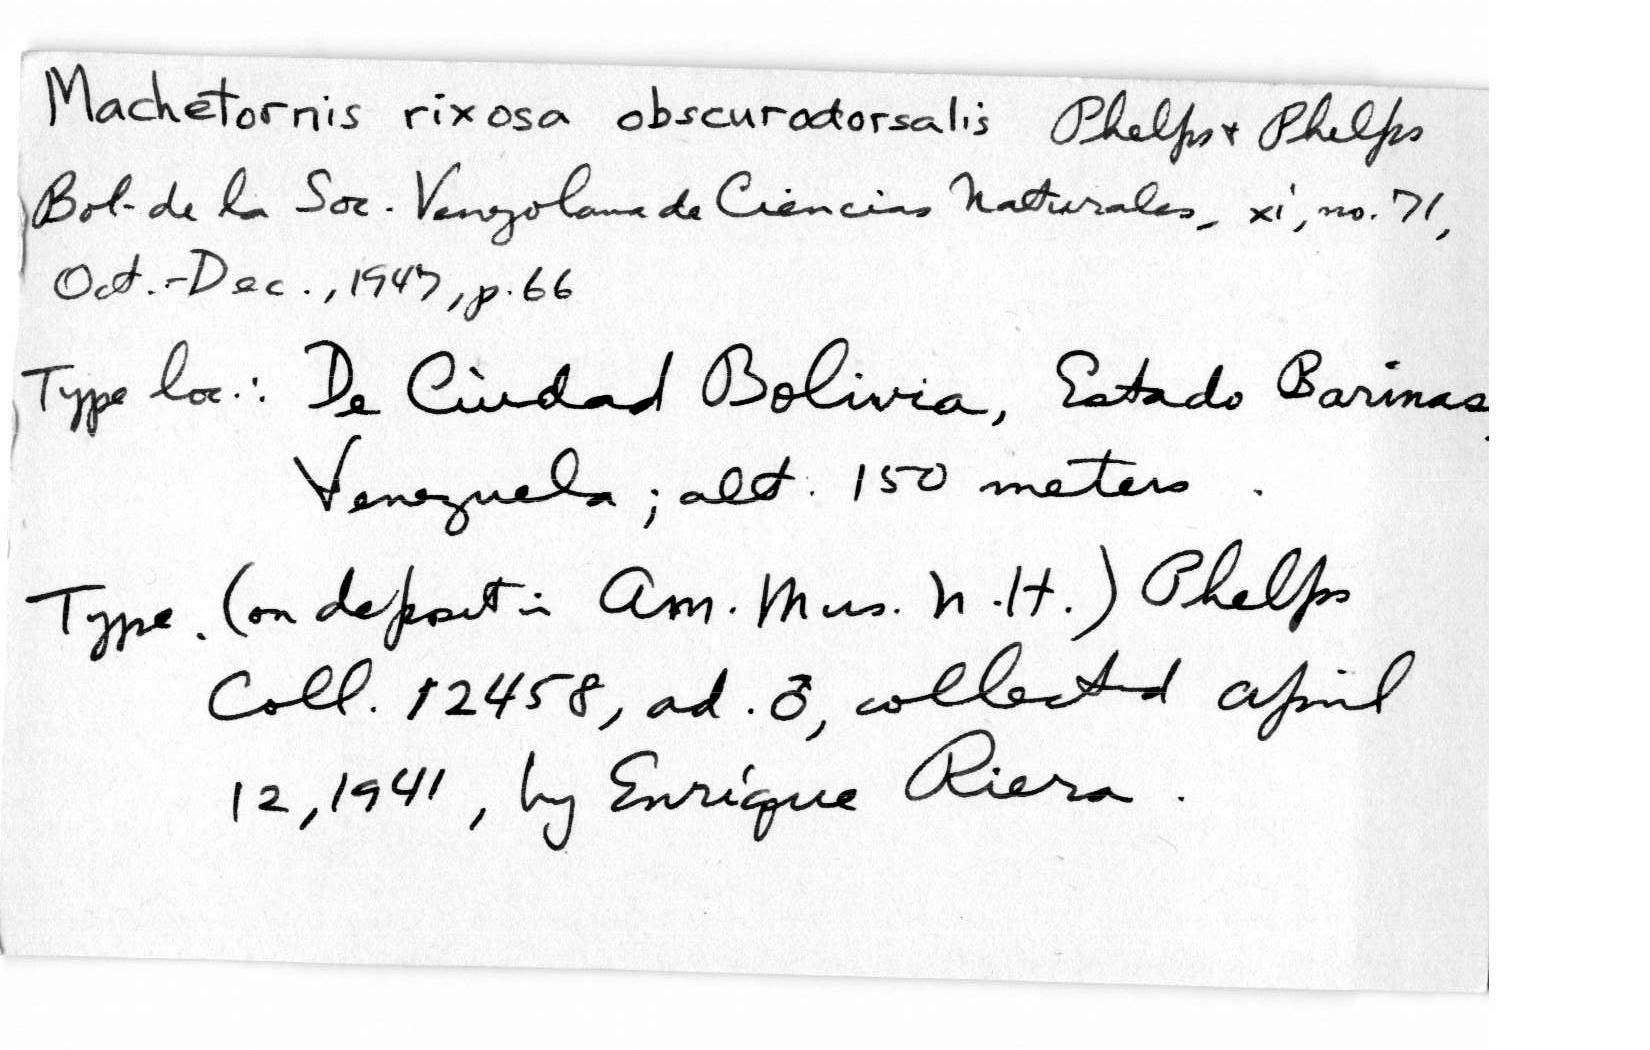 Machetornis rixosa obscurodorsalis Phelps & Phelps
Bol. de la Soc. Venezolana de Ciencias Naturales, xi, no. 71,
Oct.-Dec., 1947, p. 66
Type loc.: De Ciudad Bolivia, Estado Barinas,
Venezuela; alt. 150 meters.
Type. (on deposit in Am. Mus. N.H.) Phelps
Coll. 12458, ad. ♂, collected April
12, 1941, by Enrique Riera.